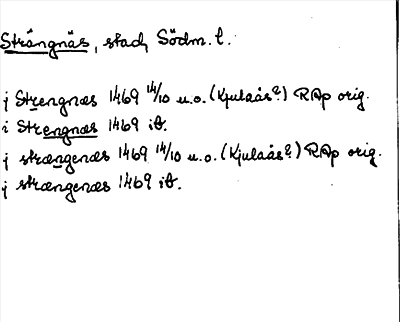 Strängnäs, stad, Södm. l.
j Strengnæs 1469 14/10 u.o. (Kjulaås?) RAp orig.
i Strengnæs 1469 ib.
j strængenæs 1469 14/10 u.o. (Kjulaås?) RAp orig.
j strængenæs 1469 ib.